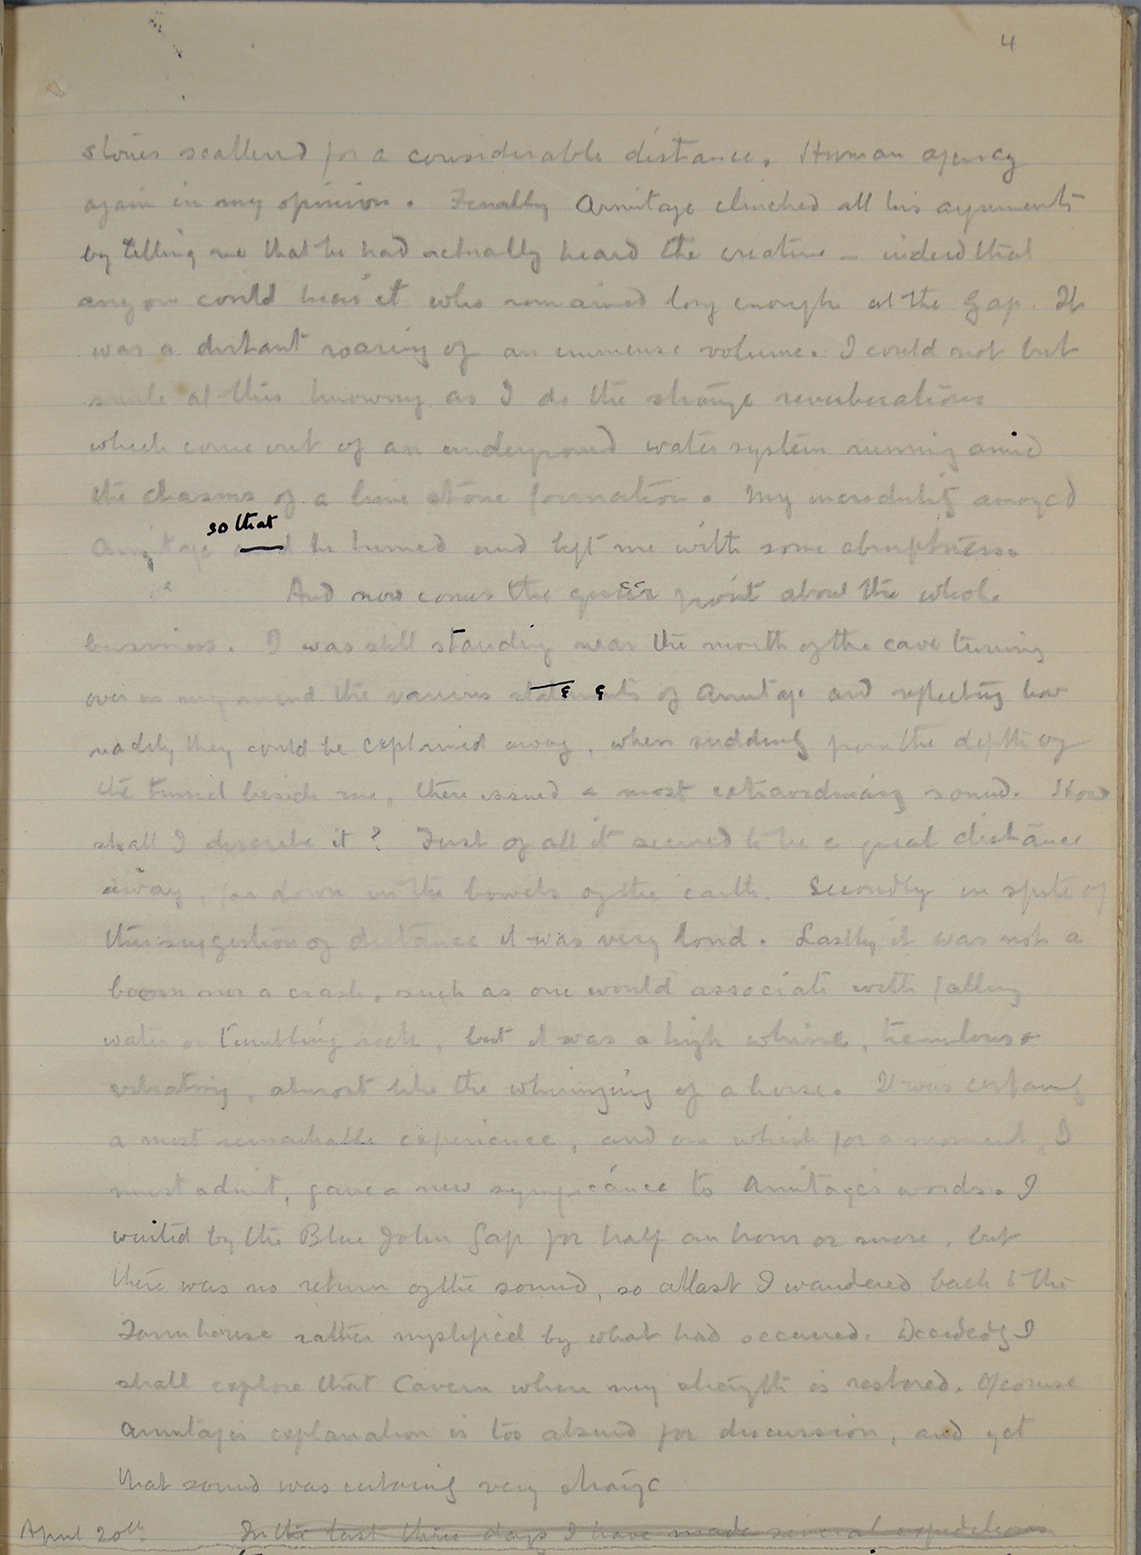 4
stones scattered for a considerable distance. Human agency
again in my opinion. Finally Armitage clinched all his arguments
by telling me that he had actually heard the creature – indeed that
anyone could hear it who remained long enough at the Gap. It
was a distant roaring of an immense volume. I could not but
smile at this knowing as I do the strange reverberations
which come out of an underground water system running amid
the chasms of a lime stone formation. My incredulity annoyed
so that
Armitage and he turned and left me with some abruptness.
And now comes the queer point about the whole
business. I was still standing near the mouth of the cave turning
over in my mind the various statements of Armitage and reflecting how
readily they could be explained away, when suddenly from the depth of
the tunnel beside me, there issued a most extraordinary sound. How
shall I describe it? First of all it seemed to be a great distance
away, far down in the bowels of the earth. Secondly in spite of
this suggestion of distance it was very loud. Lastly it was not a
boom nor a crash, such as one would associate with falling
water or tumbling rock, but it was a high whine, tremulous &
vibrating, almost like the whinnying of a horse. It was certainly
a most remarkable experience, and one which for a moment, I
must admit, gave a new significance to Armitage's words. I
waited by the Blue John Gap for half an hour or more, but
there was no return of the sound, so at last I wandered back to the
Farmhouse rather mystified by what had occurred. Decidedly I
shall explore that Cavern when my strength is restored. Of course
Armitage's explanation is too absurd for discussion, and yet
that sound was certainly very strange
April 20th. In the last three days I have made several expeditions